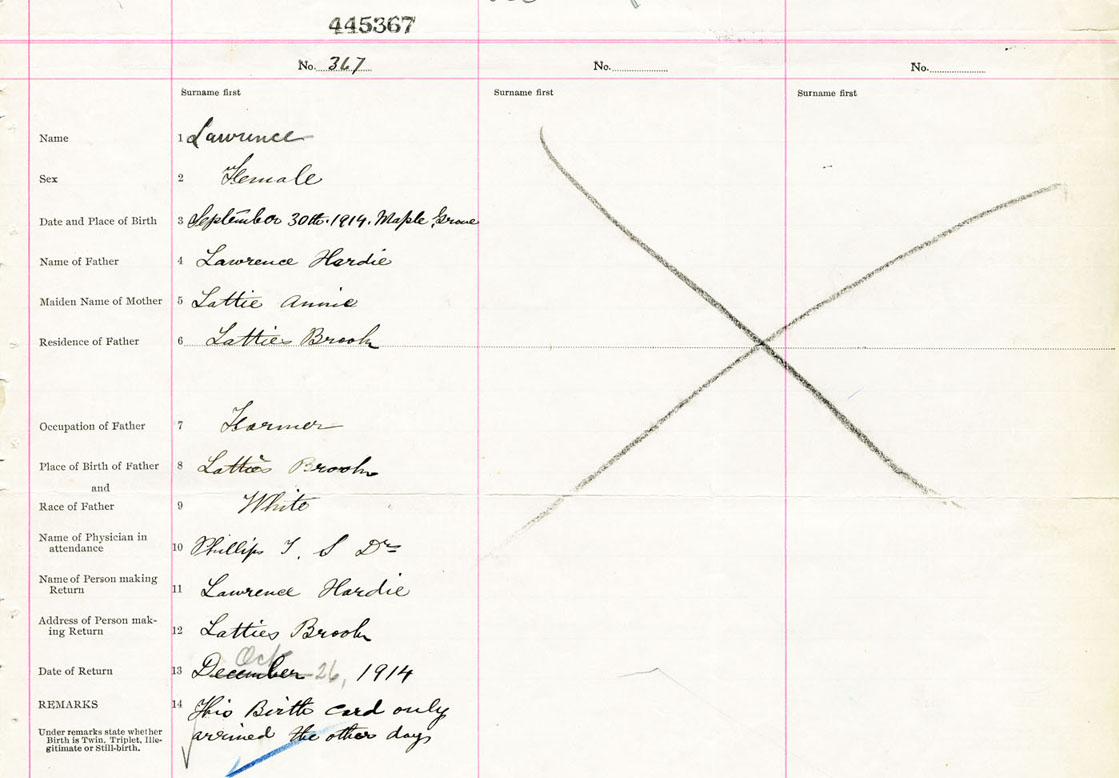 445367
No. 367 No. No.
Surname first Surname first Surname first
Name 1 Lawrence
Sex 2 Female
Date and Place of Birth 3 September 30th. 1914. Maple Grove
Name of Father 4 Lawrence Hardie
Maiden Name of Mother 5 Lattie Annie
Residence of Father 6 Latties Brook
Occupation of Father 7 Farmer
Place of Birth of Father 8 Latties Brook
and
Race of Father 9 White
Name of Physician in
attendance 10 Phillips T. S Dr
Name of Person making
Return 11 Lawrence Hardie
Address of Person mak-
ing Return 12 Latties Brook
Oct
Date of Return 13 December 26, 1914
REMARKS 14 This Birth card only
Under remarks state whether
Birth is Twin, Triplet, Ille-
gitimate or Still-birth.
arrived the other day